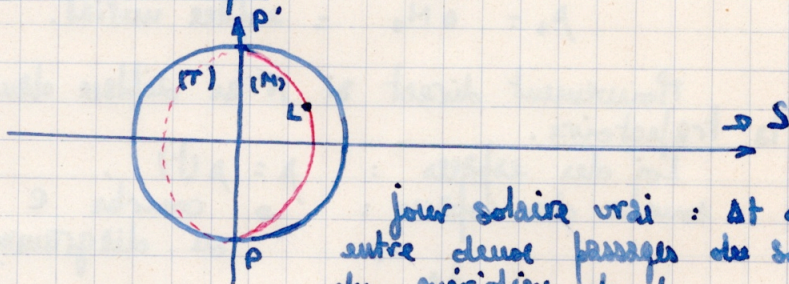 P'
(T) (M)
L
→ S
P
jour solaire vrai : Δt
entre deux passages du